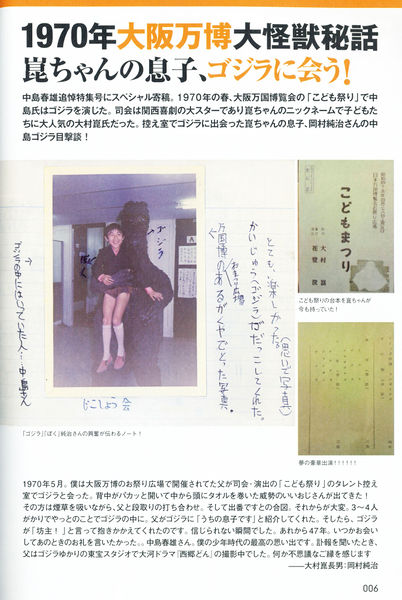 1970年大阪万博大怪獣秘話
崑ちゃんの息子、ゴジラに会う!
中島春雄追悼特集号にスペシャル寄稿。1970年の春、大阪万国博覧会の「こども祭り」で中
島氏はゴジラを演じた。司会は関西喜劇の大スターであり崑ちゃんのニックネームで子どもた
ちに大人気の大村崑氏だった。控え室でゴジラに出会った崑ちゃんの息子、岡村純治さんの中
島ゴジラ目撃談!
とても、楽しかった。(思いで写真)
かいじゅう(ゴジラ)がだっこしてくれた。
おまつり広場
万国博のあるがくやでとった写真。
ゴジラ
ぼく
ゴジラの中にはいっていた人…中島さん
じこしょう会
「ゴジラ」「ぼく」純治さんの興奮が伝わるノート!
こどもまつり
大村崑
こども祭りの台本を崑ちゃんが
今も持っていた!
夢の豪華出演!!!!!!
1970年5月。僕は大阪万博のお祭り広場で開催されてた父が司会・演出の「こども祭り」のタレント控え
室でゴジラと会った。背中がパカッと開いて中から頭にタオルを巻いた威勢のいいおじさんが出てきた!
その方は煙草を吸いながら、父と段取りの打ち合わせ。そして出番ですとの合図。それからが大変。3〜4人
がかりでやっとのことでゴジラの中に。父がゴジラに「うちの息子です」と紹介してくれた。そしたら、ゴジラ
が「坊主!」と言って抱きかかえてくれたのです。信じられない瞬間でした。あれから47年。いつかお会い
してあのときのお礼を言いたかった。。中島春雄さん。僕の少年時代の最高の思い出です。訃報を聞いたとき、
父はゴジラゆかりの東宝スタジオで大河ドラマ『西郷どん』の撮影中でした。何か不思議なご縁を感じます
――大村崑長男:岡村純治
006